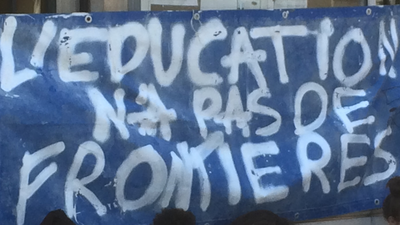 L'EDUCATION
N'A PAS DE
FRONTIERES